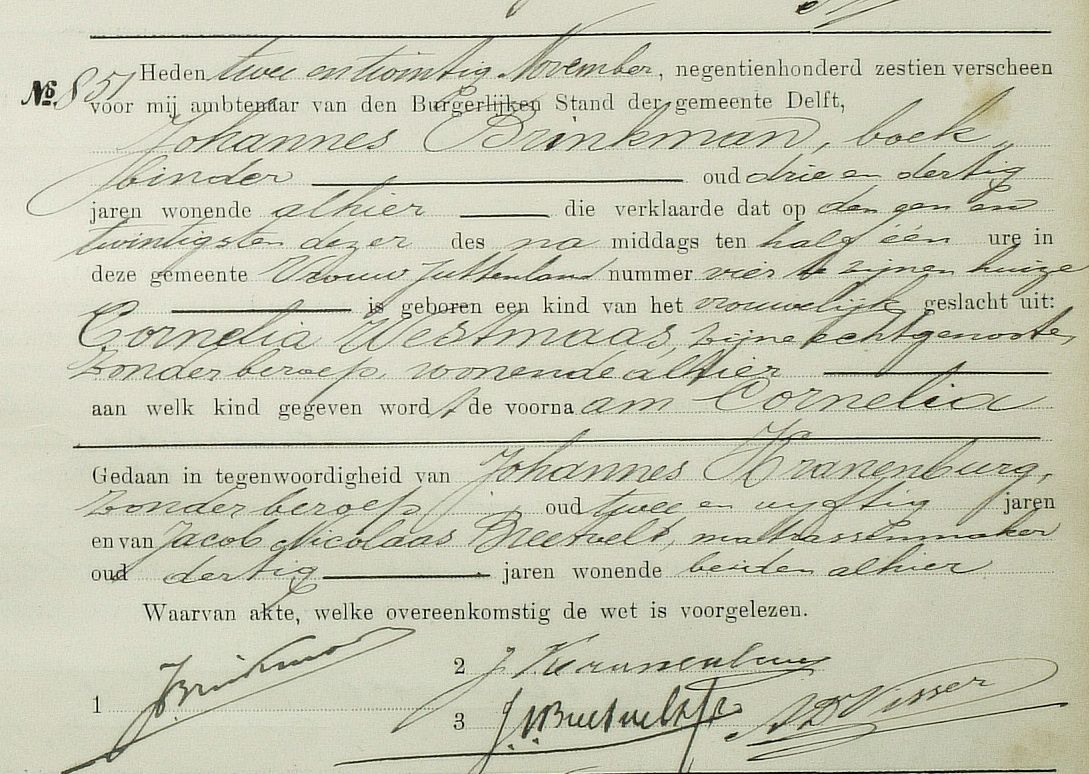 No. 851 Heden twee en twintig November, negentienhonderd zestien verscheen
voor mij ambtenaar van den Burgerlijken Stand der gemeente Delft,
Johannes Brinkman, boek
binder oud drie en dertig
jaren wonende alhier die verklaarde dat op den een en
twintigsten dezer des na middags ten half één ure in
deze gemeente Vrouw Juttenland nummer vier te zijnen huize
is geboren een kind van het vrouwelijk geslacht uit:
Cornelia Westmaas, zijne echtgenoote,
zonder beroep, wonende alhier
aan welk kind gegeven word t de voorna am Cornelia
Gedaan in tegenwoordigheid van Johannes Kranenburg,
zonder beroep, oud twee en vijftig jaren
en van Jacob Nicolaas Breetvelt, matrassenmaker
oud dertig jaren wonende beiden alhier
Waarvan akte, welke overeenkomstig de wet is voorgelezen.
1 J Brinkman
2 J Kranenburg
3 J. N Breetvelt Visser